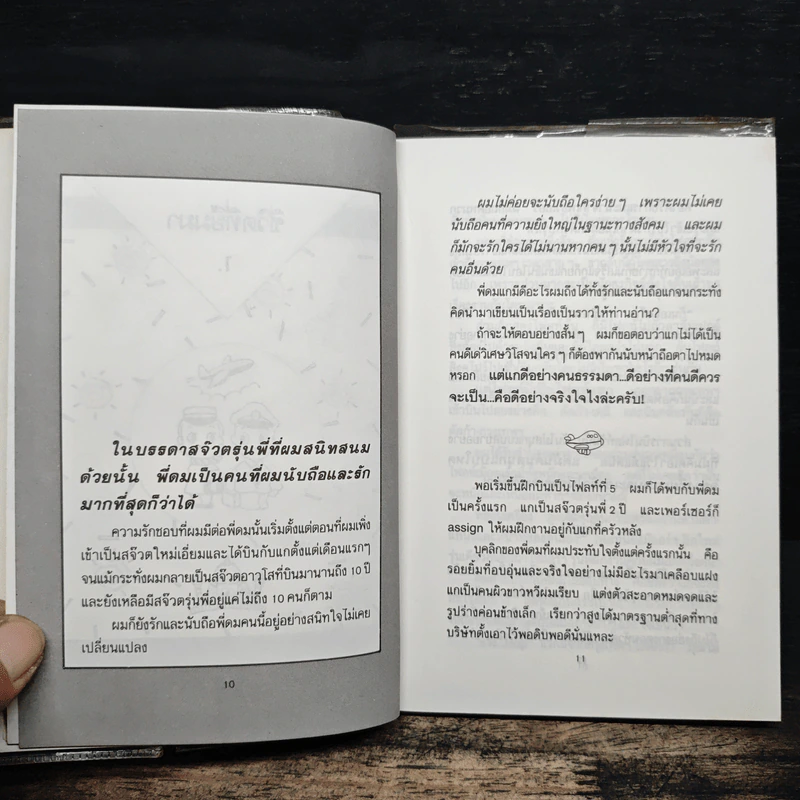 ในบรรดาสจ๊วตรุ่นพี่ที่ผมสนิทสนม
ด้วยนั้น พี่ดมเป็นคนที่ผมนับถือและรัก
มากที่สุดก็ว่าได้
ความรักชอบที่ผมมีต่อพี่ดมนั้นเริ่มตั้งแต่ตอนที่ผมเพิ่ง
เข้าเป็นสจ๊วตใหม่เอี่ยมและได้บินกับแกตั้งแต่เดือนแรกๆ
จนแม้กระทั่งผมกลายเป็นสจ๊วตอาวุโสที่บินมานานถึง 10 ปี
และยังเหลือมีสจ๊วตรุ่นพี่อยู่แค่ไม่ถึง 10 คนก็ตาม
ผมก็ยังรักและนับถือพี่ดมคนนี้อยู่อย่างสนิทใจไม่เคย
เปลี่ยนแปลง
10
ผมไม่ค่อยจะนับถือใครง่ายๆ เพราะผมไม่เคย
นับถือคนที่ความยิ่งใหญ่ในฐานะทางสังคม และผม
ก็มักจะรักใครได้ไม่นานหากคนๆ นั้นไม่มีหัวใจที่จะรัก
คนอื่นด้วย
พี่ดมแกมีดีอะไรผมถึงได้ทั้งรักและนับถือแกจนกระทั่ง
คิดนำมาเขียนเป็นเรื่องเป็นราวให้ท่านอ่าน?
ถ้าจะให้ตอบอย่างสั้นๆ ผมก็ขอตอบว่าแกไม่ได้เป็น
คนดีเด่วิเศษวิโสจนใครๆ ก็ต้องพากันนับหน้าถือตาไปหมด
หรอก แต่แกดีอย่างคนธรรมดา...ดีอย่างที่คนดีควร
จะเป็น...คือดีอย่างจริงใจไงล่ะครับ!
พอเริ่มขึ้นฝึกบินเป็นไฟลท์ที่ 5 ผมก็ได้พบกับพี่ดม
เป็นครั้งแรก แกเป็นสจ๊วตรุ่นพี่ 2 ปี และเพอร์เซอร์ก็
assign ให้ผมฝึกงานอยู่กับแกที่ครัวหลัง
บุคลิกของพี่ดมที่ผมประทับใจตั้งแต่ครั้งแรกนั้น คือ
รอยยิ้มที่อบอุ่นและจริงใจอย่างไม่มีอะไรมาเคลือบแฝง
แกเป็นคนผิวขาวหวีผมเรียบ แต่งตัวสะอาดหมดจดและ
รูปร่างค่อนข้างเล็ก เรียกว่าสูงได้มาตรฐานต่ำสุดที่ทาง
บริษัทตั้งเอาไว้พอดิบพอดีนั่นแหละ
11